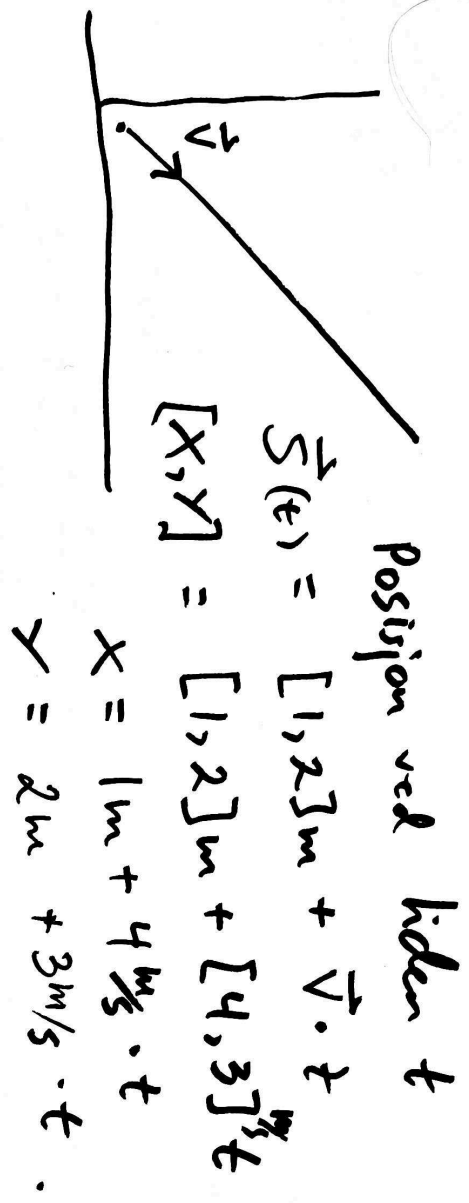 Posisjon ved tiden t
v⃗
S⃗(t) = [1,2]m + v⃗ · t
[x,y] = [1,2]m + [4,3]m/s t
x = 1m + 4m/s · t
y = 2m + 3m/s · t.